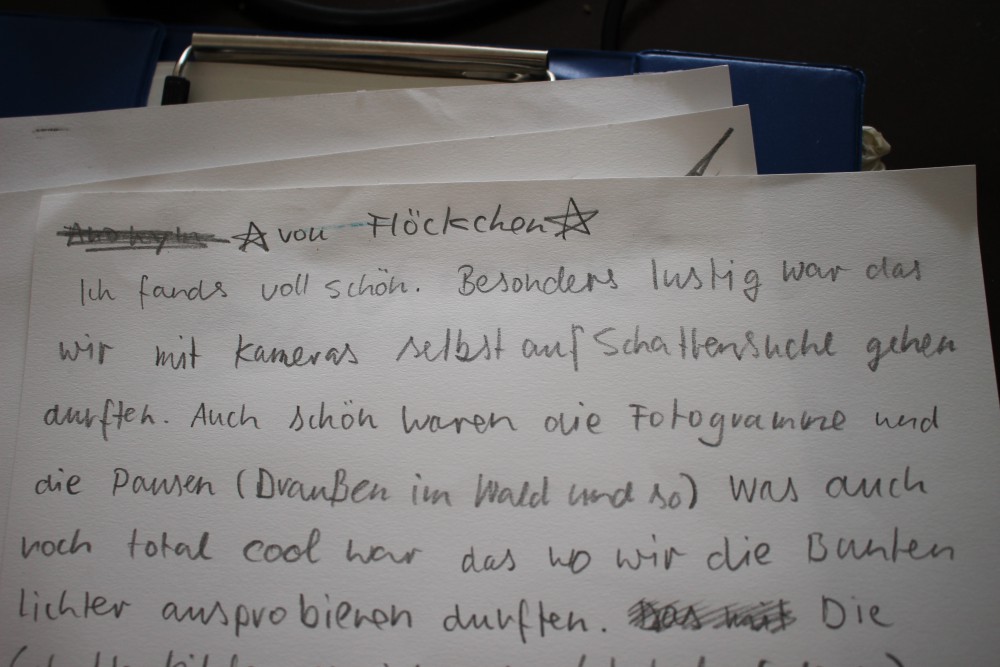 ☆ von Flöckchen ☆
Ich fands voll schön. Besonders lustig war das
wir mit Kameras selbst auf Schattensuche gehen
durften. Auch schön waren die Fotogramme und
die Pausen (Draußen im Wald und so) Was auch
noch total cool war das wo wir die Bunten
lichter ausprobieren durften. Die